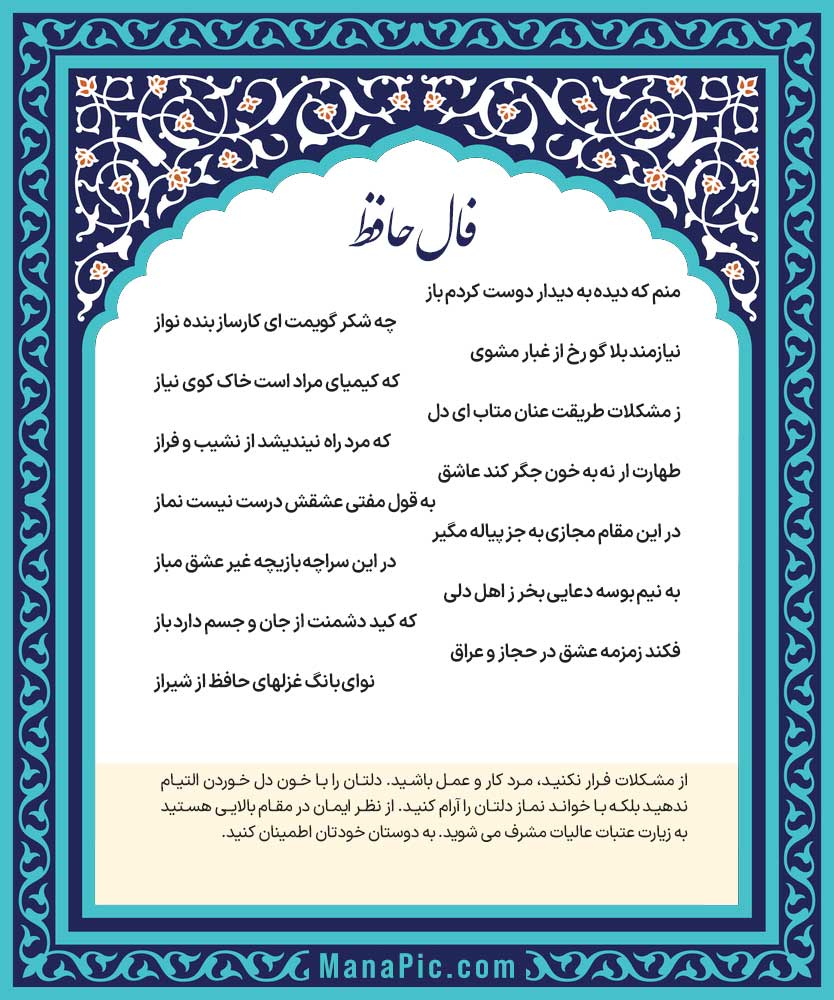 فال حافظ
منم که دیده به دیدار دوست کردم باز
چه شکر گویمت ای کارساز بنده نواز
نیازمند بلا گو رخ از غبار مشوی
که کیمیای مراد است خاک کوی نیاز
ز مشکلات طریقت عنان متاب ای دل
که مرد راه نیندیشد از نشیب و فراز
طهارت ار نه به خون جگر کند عاشق
به قول مفتی عشقش درست نیست نماز
در این مقام مجازی به جز پیاله مگیر
در این سراچه بازیچه غیر عشق مباز
به نیم بوسه دعایی بخر ز اهل دلی
که کید دشمنت از جان و جسم دارد باز
فکند زمزمه عشق در حجاز و عراق
نوای بانگ غزلهای حافظ از شیراز
از مشکلات فرار نکنید، مرد کار و عمل باشید. دلتان را با خون دل خوردن التیام
ندهید بلکه با خواند نماز دلتان را آرام کنید. از نظر ایمان در مقام بالایی هستید
به زیارت عتبات عالیات مشرف می شوید. به دوستان خودتان اطمینان کنید.
ManaPic.com